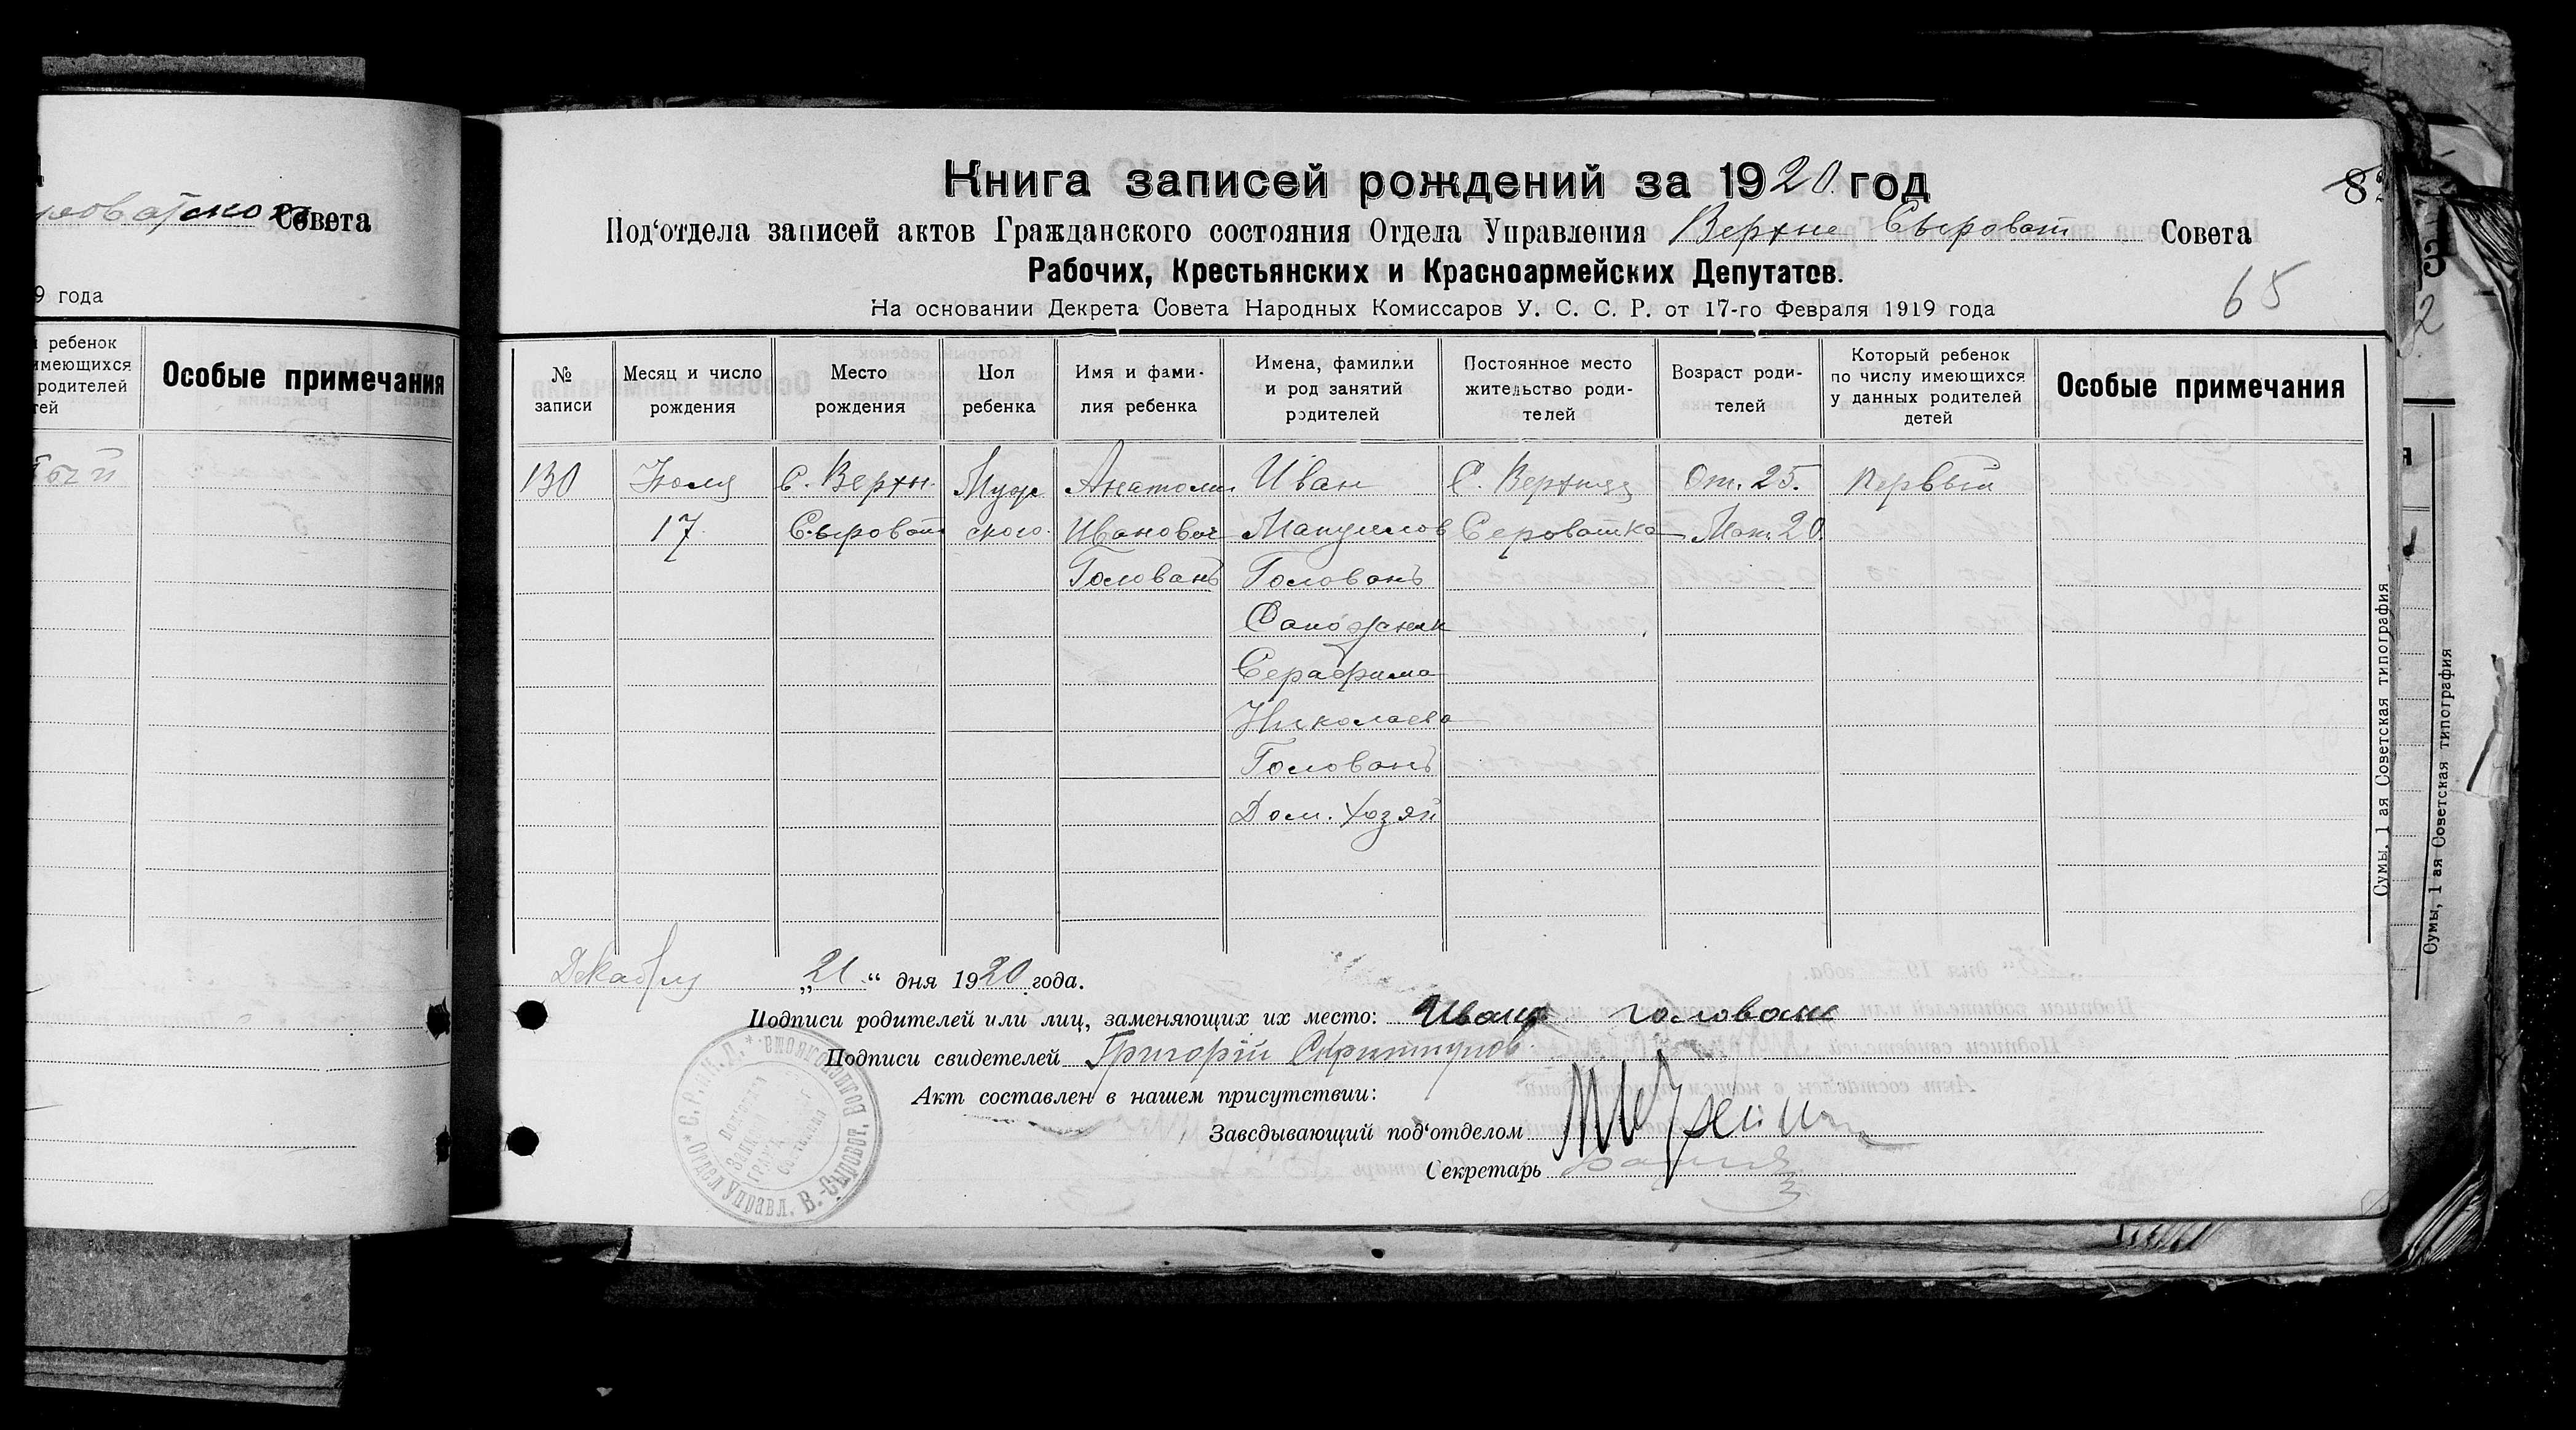 Совета
9 года
ребенок
имеющихся
родителей
тей
Особые примечания
Книга записей рождений за 1920 год
Под‘отдела записей актов Гражданского состояния Отдела Управления Верхне Сыроват Совета
Рабочих, Крестьянских и Красноармейских Депутатов.
На основании Декрета Совета Народных Комиссаров У. С. С. Р. от 17-го Февраля 1919 года
65
№ записи
Месяц и число рождения
Место рождения
Пол ребенка
Имя и фами-
лия ребенка
Имена, фамилии
и род занятий
родителей
Постоянное место
жительство роди-
телей
Возраст роди-
телей
Который ребенок
по числу имеющихся
у данных родителей
детей
Особые примечания
130 Июля С. Верхн. Муж Анатолий Иван С. Верхняя От. 25. первый
17. Сыроват ского. Иванович Сероватка Мат. 20
Головань Головань
Сапожник
Серафима
Николаева
Головань
Дом. хозяй
Декабря „21“ дня 1920 года.
Подписи родителей или лиц, заменяющих их место: Иван Головань
Подписи свидетелей Григорій
Акт составлен в нашем присутствии:
Заведывающий под‘отделом
Секретарь
Отдел Управл. В.-Сыроват. Волисполкома
Сумы, 1 ая Советская типография
Сумы, 1 ая Советская типография